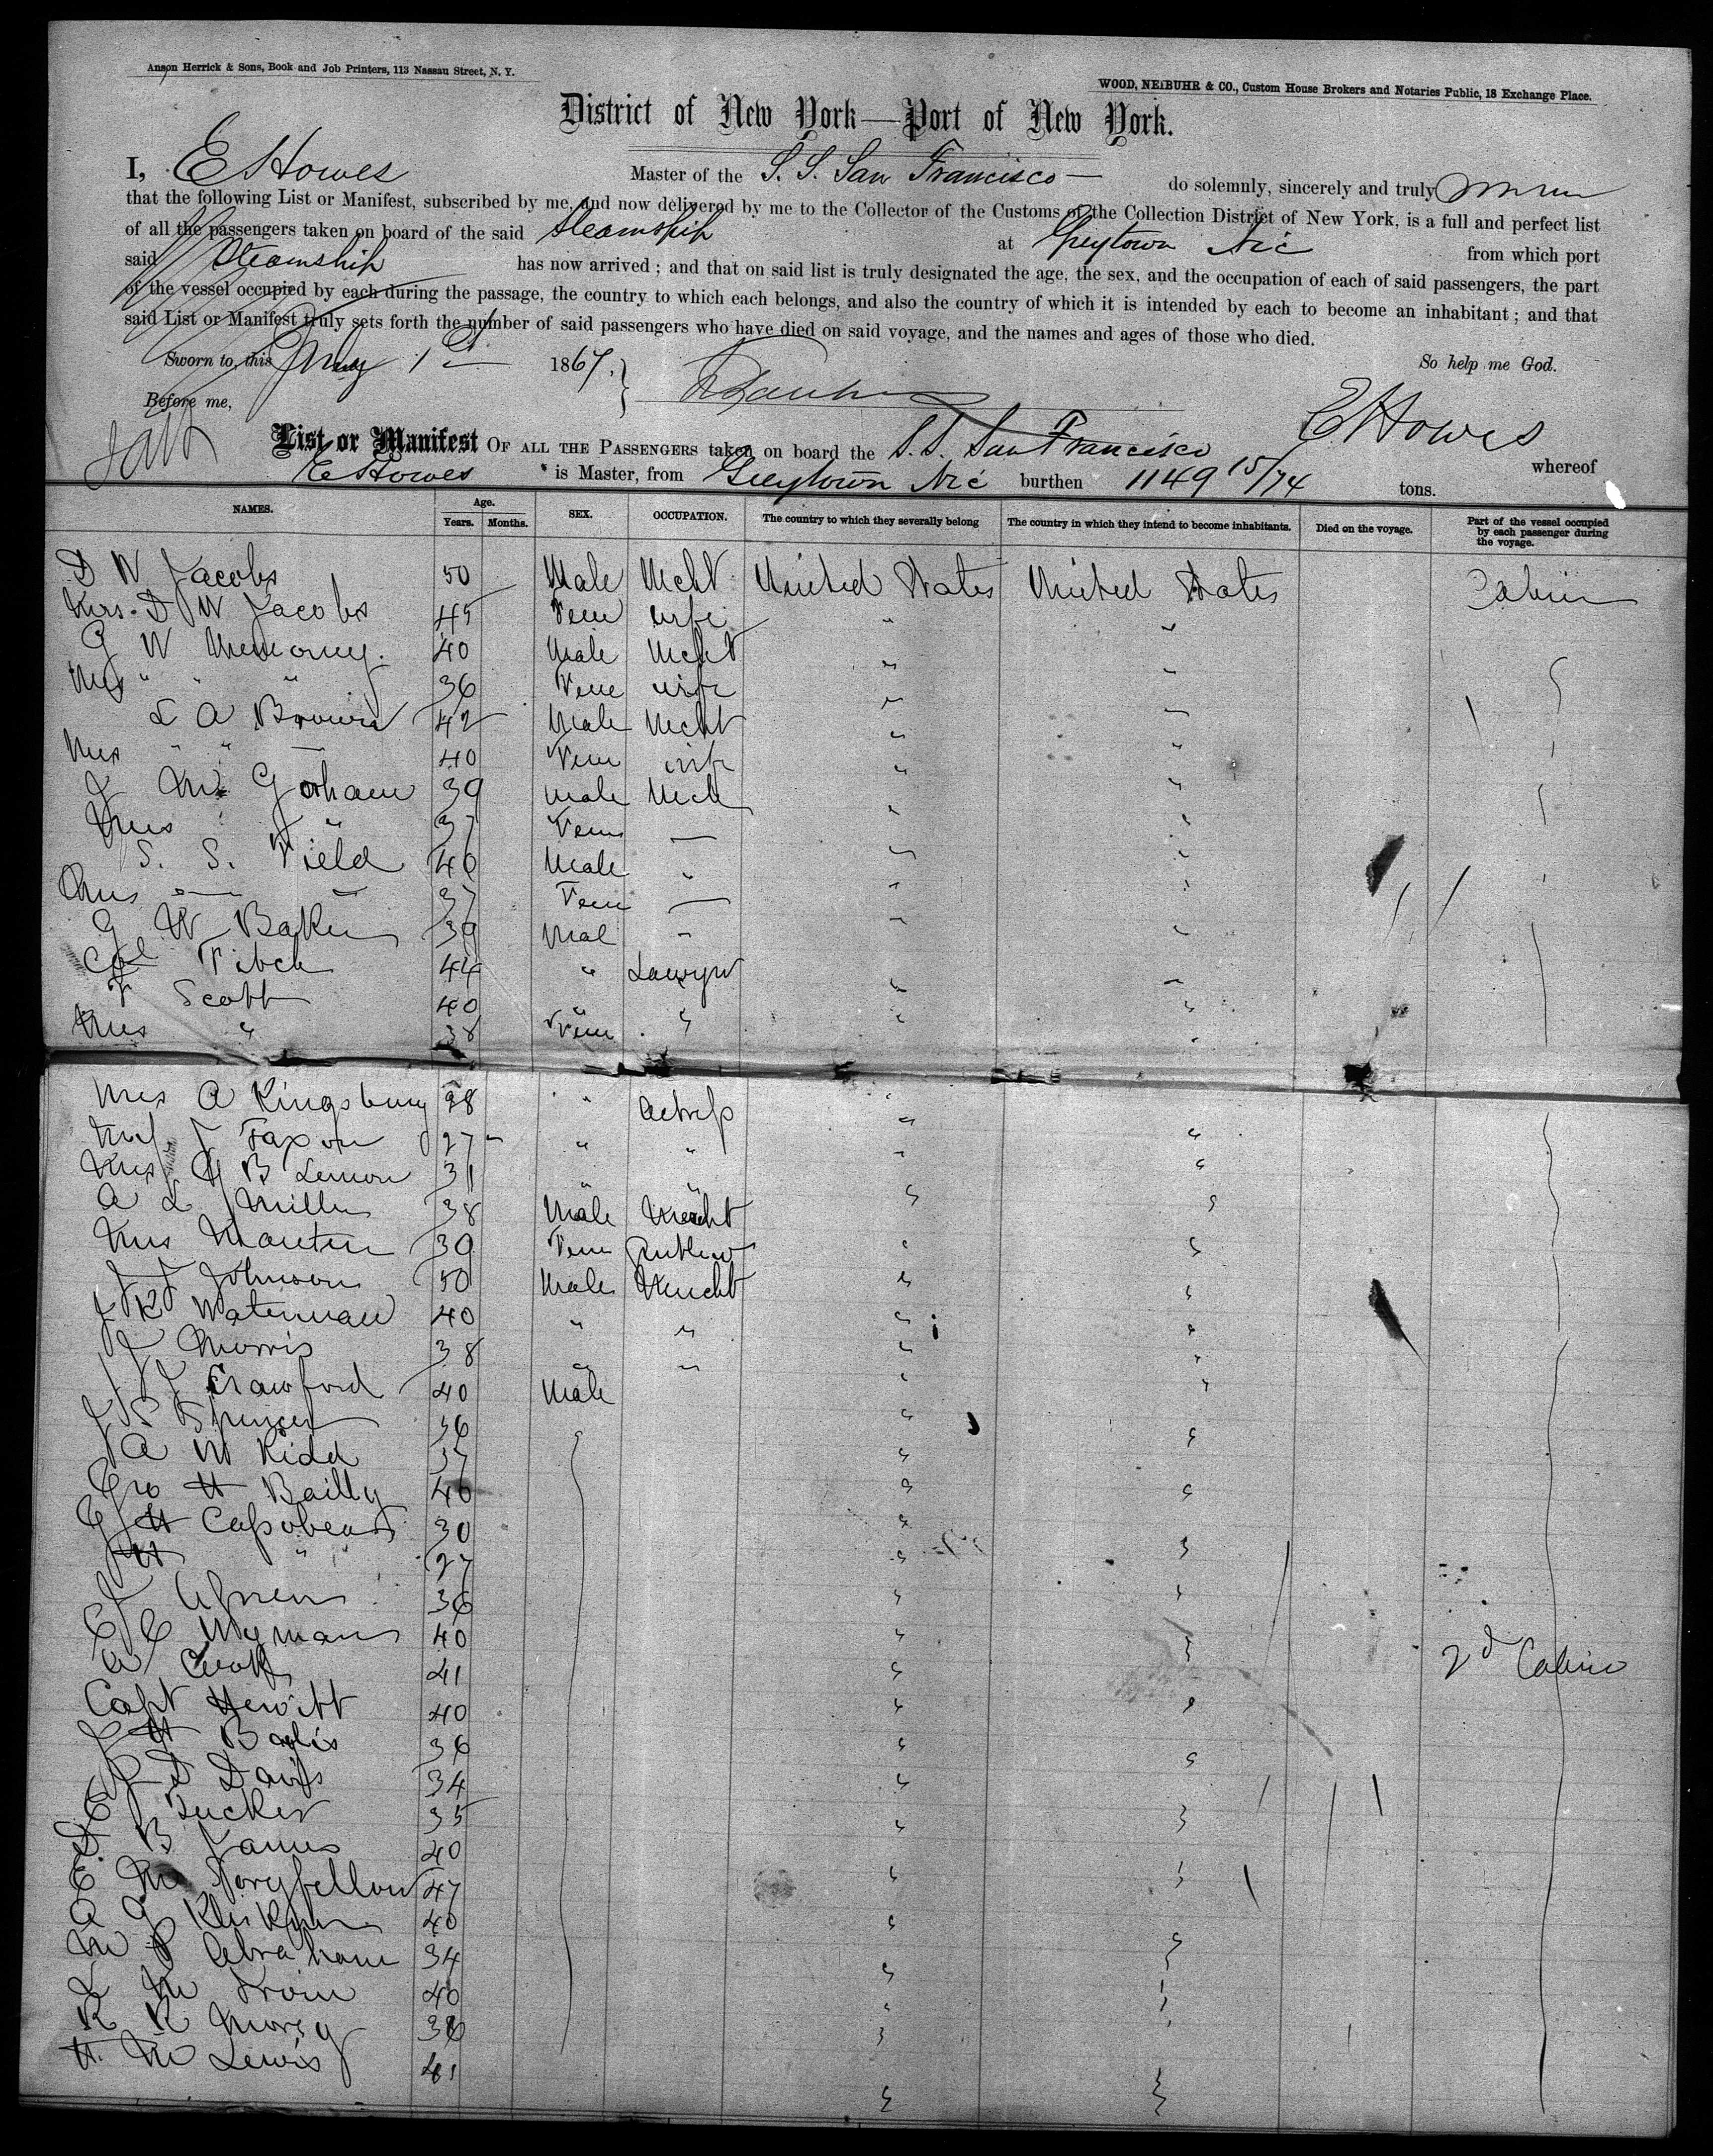 Anson Herrick & Sons, Book and Job Printers, 113 Nassau Street, N. Y.
WOOD, NEIBUHR & CO., Custom House Brokers and Notaries Public, 18 Exchange Place.
District of New York—Port of New York.
I, E Howes Master of the S. S. San Francisco — do solemnly, sincerely and truly
that the following List or Manifest, subscribed by me, and now delivered by me to the Collector of the Customs of the Collection District of New York, is a full and perfect list
of all the passengers taken on board of the said Steamship at Greytown Nic from which port
said Steamship has now arrived; and that on said list is truly designated the age, the sex, and the occupation of each of said passengers, the part
of the vessel occupied by each during the passage, the country to which each belongs, and also the country of which it is intended by each to become an inhabitant; and that
said List or Manifest truly sets forth the number of said passengers who have died on said voyage, and the names and ages of those who died.
Sworn to, this 1st 1867. So help me God.
Before me,
E Howes
List or Manifest OF ALL THE PASSENGERS taken on board the S. S. San Francisco whereof
E Howes is Master, from Greytown Nic burthen 1149 15/74 tons.
NAMES. Age. Years. Months. SEX. OCCUPATION. The country to which they severally belong The country in which they intend to become inhabitants. Died on the voyage. Part of the vessel occupied by each passenger during the voyage.
D W Jacobs 50 Male Mcht United States United States Cabin
Mrs. D W Jacobs 45 Fem wife " "
G W 40 Male Mcht " "
Mrs " " " 36 Fem wife " "
L A Brown 42 Male Mcht " "
Mrs " " 40 Fem wife " "
J M Gorham 39 Male Mch " "
Mrs " " 37 Fem — " "
S. S. Field 40 Male " " "
Mrs 37 Fem — " "
G W Baker 39 Mal " " "
Col Fitch 44 " Lawyer " "
F Scott 40 " "
Mrs " 38 Fem " " "
Mrs A Kingsbury 38 " Actress "
J Faxon 27 " " " "
Mrs B Lemon 31 " " " "
A L Miller 38 Male Mercht " "
Mrs 39 Fem " "
J J Johnson 50 Male Mercht " "
J K Waterman 40 " " " "
J Morris 38 " " " "
J Crawford 40 Male " "
J S Spencer 36 " "
A M Kidd 37 "
Geo H Bailly 40 " "
G H 30 "
H " " 27 " "
J 36 " "
C C Wyman 40 " "
A Cook 41 " 2d Cabin
Capt Hewitt 40 " "
J H 36 " "
J D Davis 34 "
E Tucker 35 " "
D. B James 40
E M 47 " "
A G 40 "
M P Abraham 34 " "
L M 40 "
R R Morey 36 "
H. M Lewis 41 "